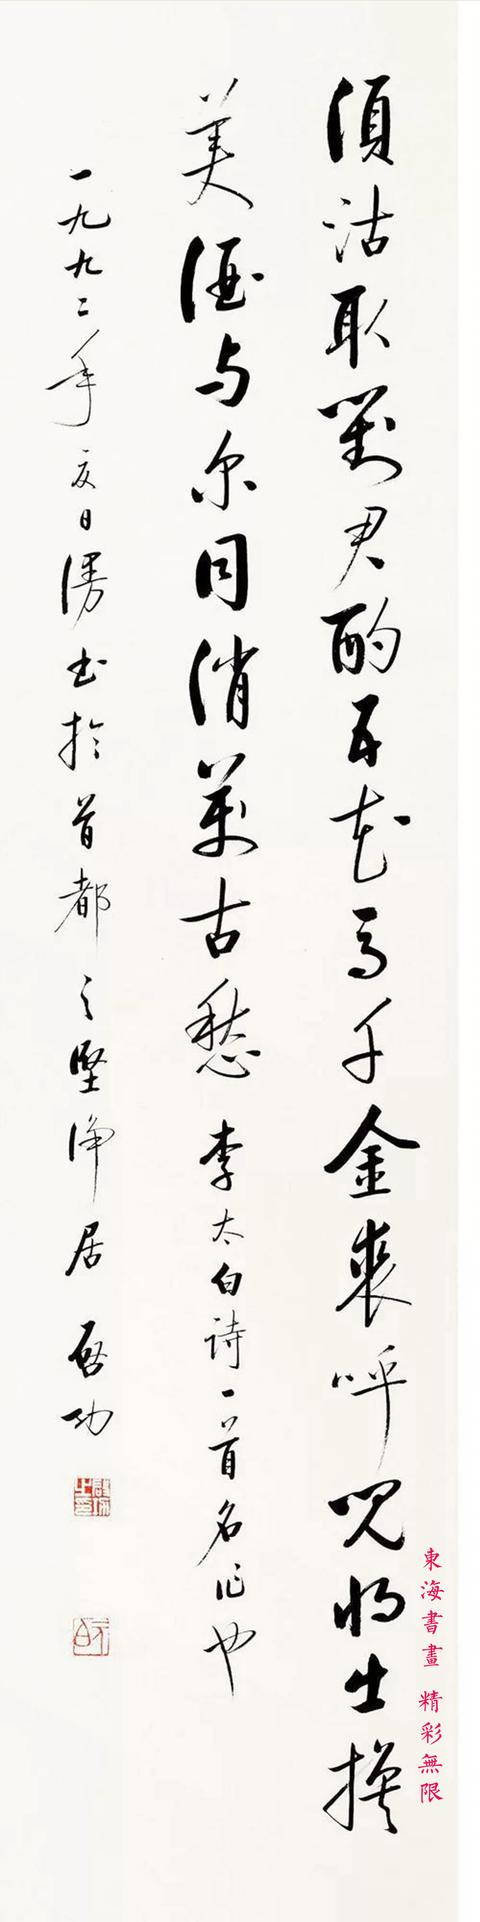 須沽取對君酌五花馬千金裘呼兒將出換
美酒与尔同消萬古愁 李太白詩一首名作也
一九九二年夏日漫书於首都之堅净居 启功
東海書畫 精彩無限